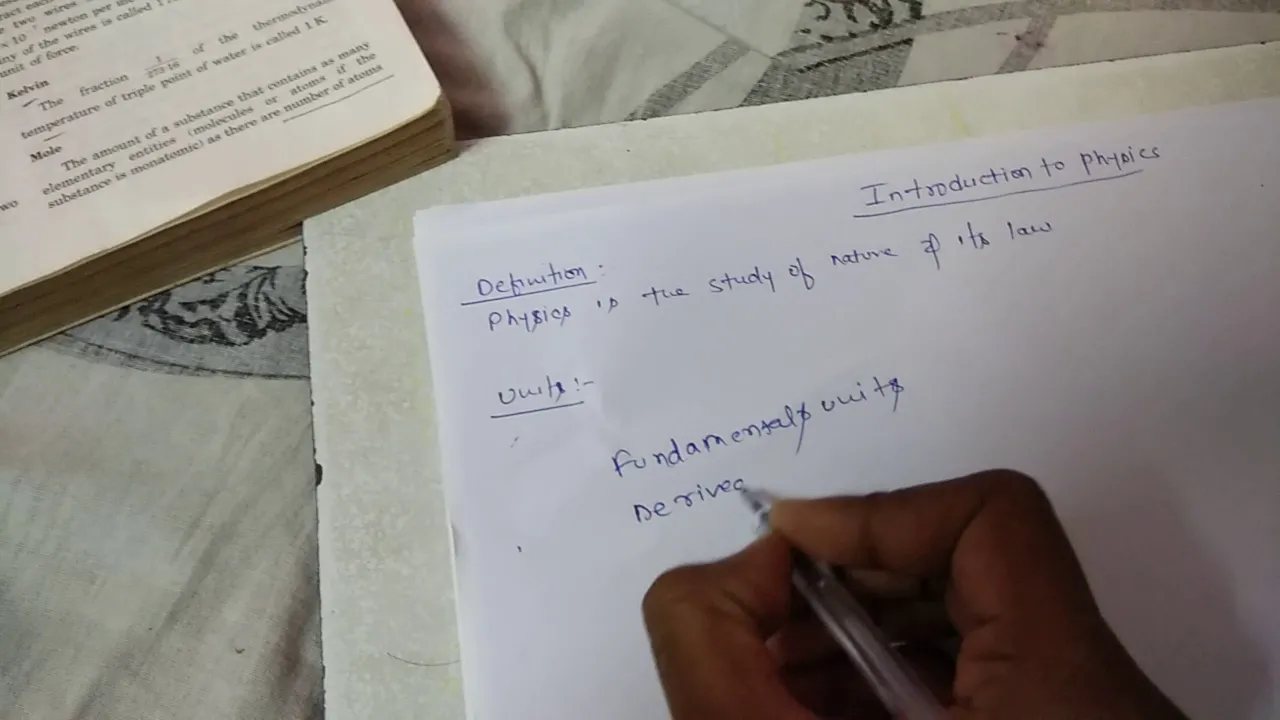 two wires
newton per
ny of the wires is called 1
unit of force.
Kelvin
The fraction 1/273·16 of the
temperature of triple point of water is called 1 K.
Mole
The amount of a substance that contains as many
elementary entities (molecules or atoms if the
substance is monatomic) as there are number of atoms
Introduction to physics
Definition:
Physics is the study of nature & its law
Units:-
Fundamentals units
Derived